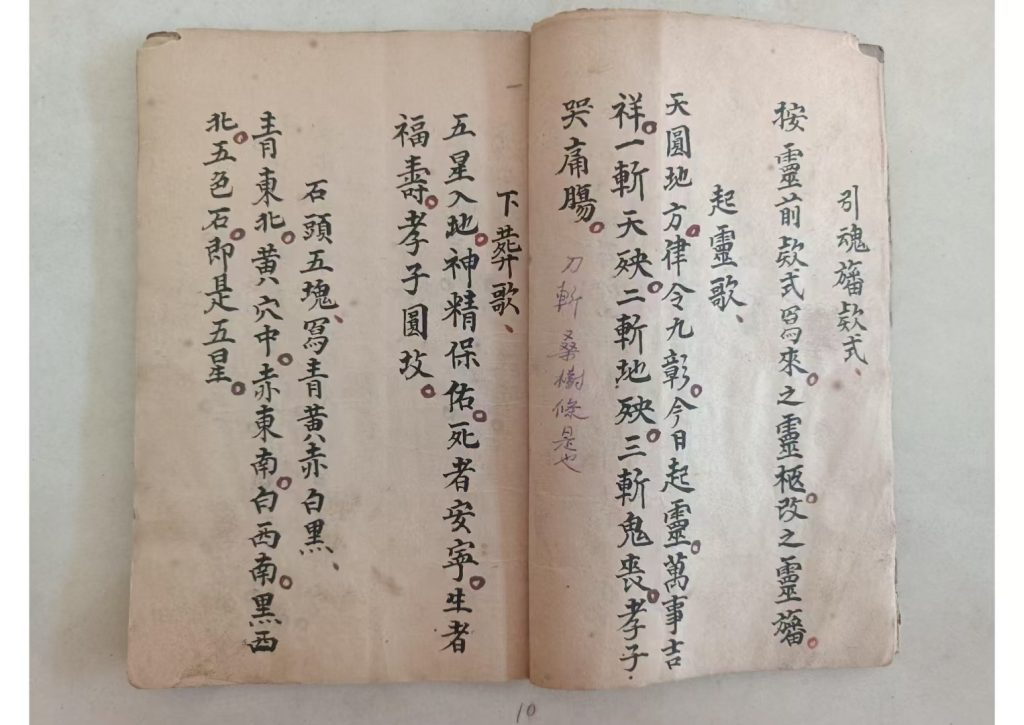 引魂旛欵式、
按靈前欵式寫來。之靈柩。改之靈旛。
起靈歌、
天圓地方。律令九彰。今日起靈。萬事吉
祥。一斬天殃。二斬地殃。三斬鬼喪。孝子
哭痛腸。
刀斬桑樹條是也
下葬歌、
五星入地。神精保佑。死者安寧。生者
福壽。孝子圓坟。
石頭五塊、寫青黃赤白黑、
青東北。黃穴中。赤東南。白西南。黑西
北。五色石。即是五星。
10